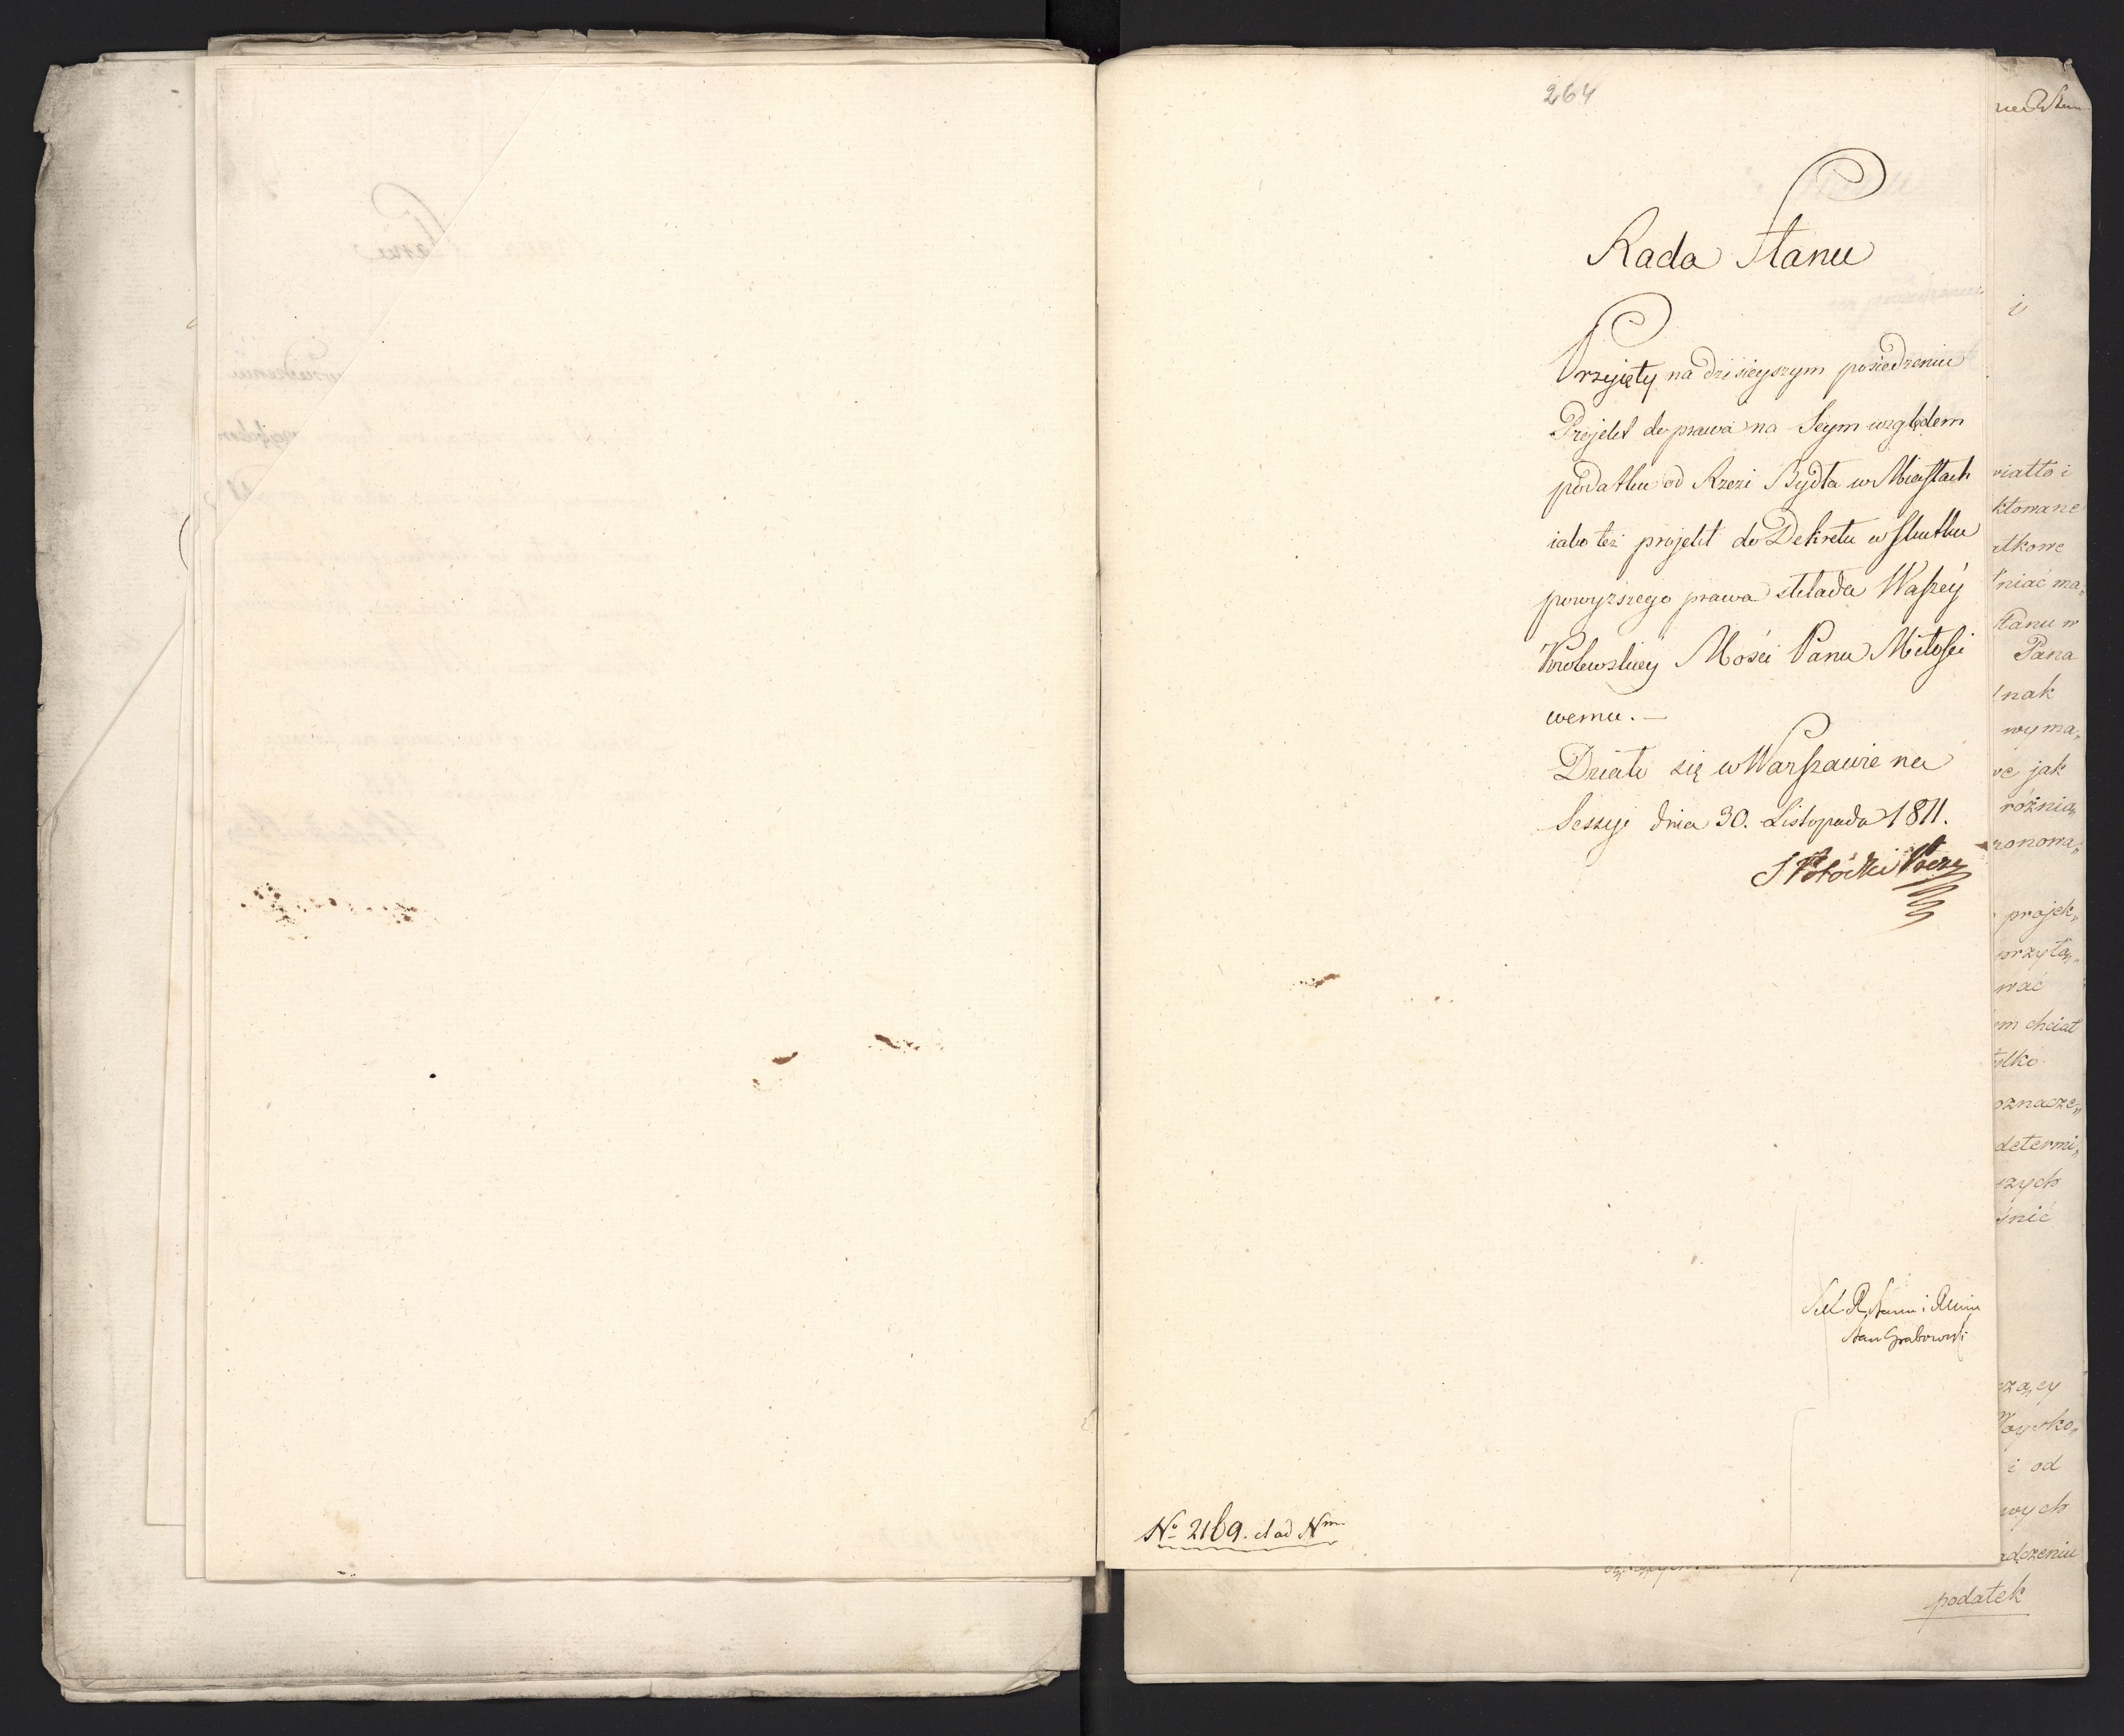 264
Rada Stanu
Przyięty na dzisieyszym posiedzeniu
Projekt do prawa na Seym względem
podatku od Rzezi Bydła w Miastach
iako też projekt do Dekretu w skutku
powyższego prawa składa Waszey
Królewskiey Mości Panu Miłości
wemu. —
Działo się w Warszawie na
Sessyi dnia 30. Listopada 1811.
S Potocki Prezz
Sek R Stanu i Ministr
Stan Grabowski
No 2169. et ad Nm.
i
riatto i
ktowane
atkowe
łniać ma„
Stanu w
Pana
dnak
wyma„
ve jak
różnia„
ronowa„
projek„
przyta„
wać
em chciał
tylko
oznacze„
determi„
szych
śnić
czą,cy
Woysko„
i od
wych
adczeniu
podatek